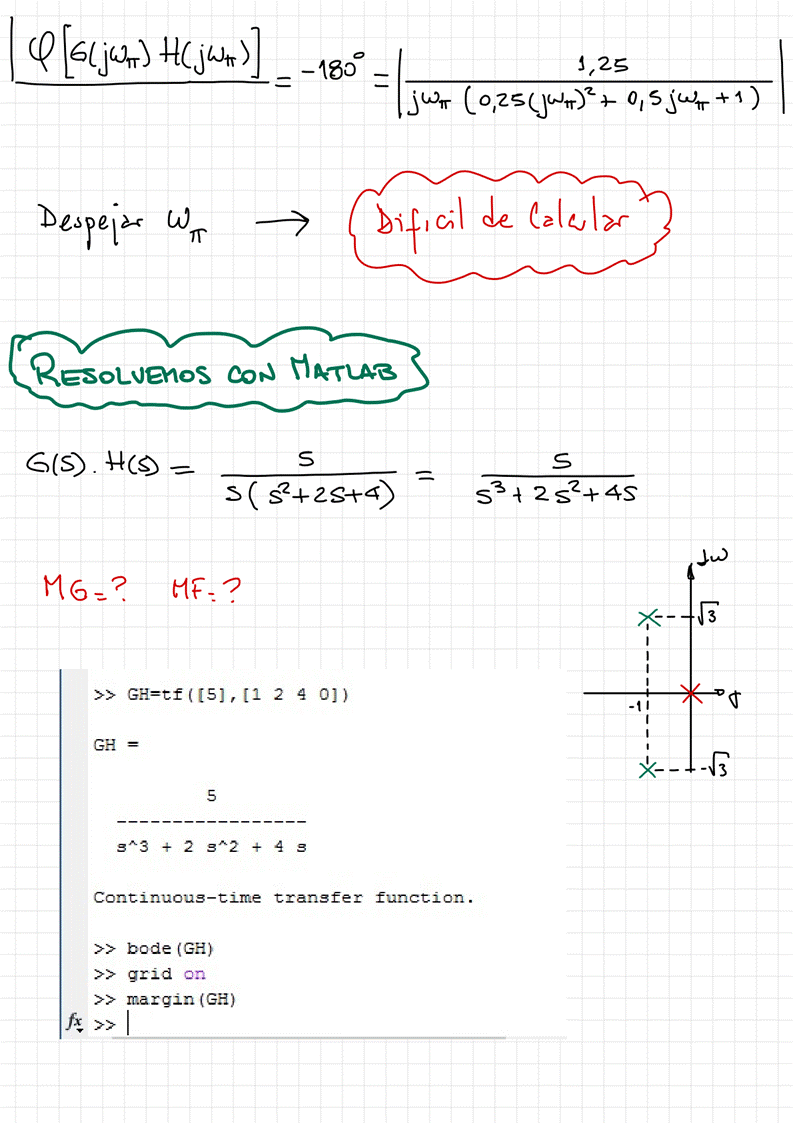 |φ[G(jωπ) H(jωπ)]| = -180° = |1,25 / (jωπ (0,25(jωπ)² + 0,5jωπ + 1))|
Despejar ωπ → Dificil de Calcular
RESOLVEMOS CON MATLAB
G(s) . H(s) = 5 / (s(s²+2s+4)) = 5 / (s³ + 2s² + 4s)
MG=? MF=?
jω
√3
-1
σ
-√3
>> GH=tf([5],[1 2 4 0])
GH =
5
-----------------
s^3 + 2 s^2 + 4 s
Continuous-time transfer function.
>> bode(GH)
>> grid on
>> margin(GH)
fx >>